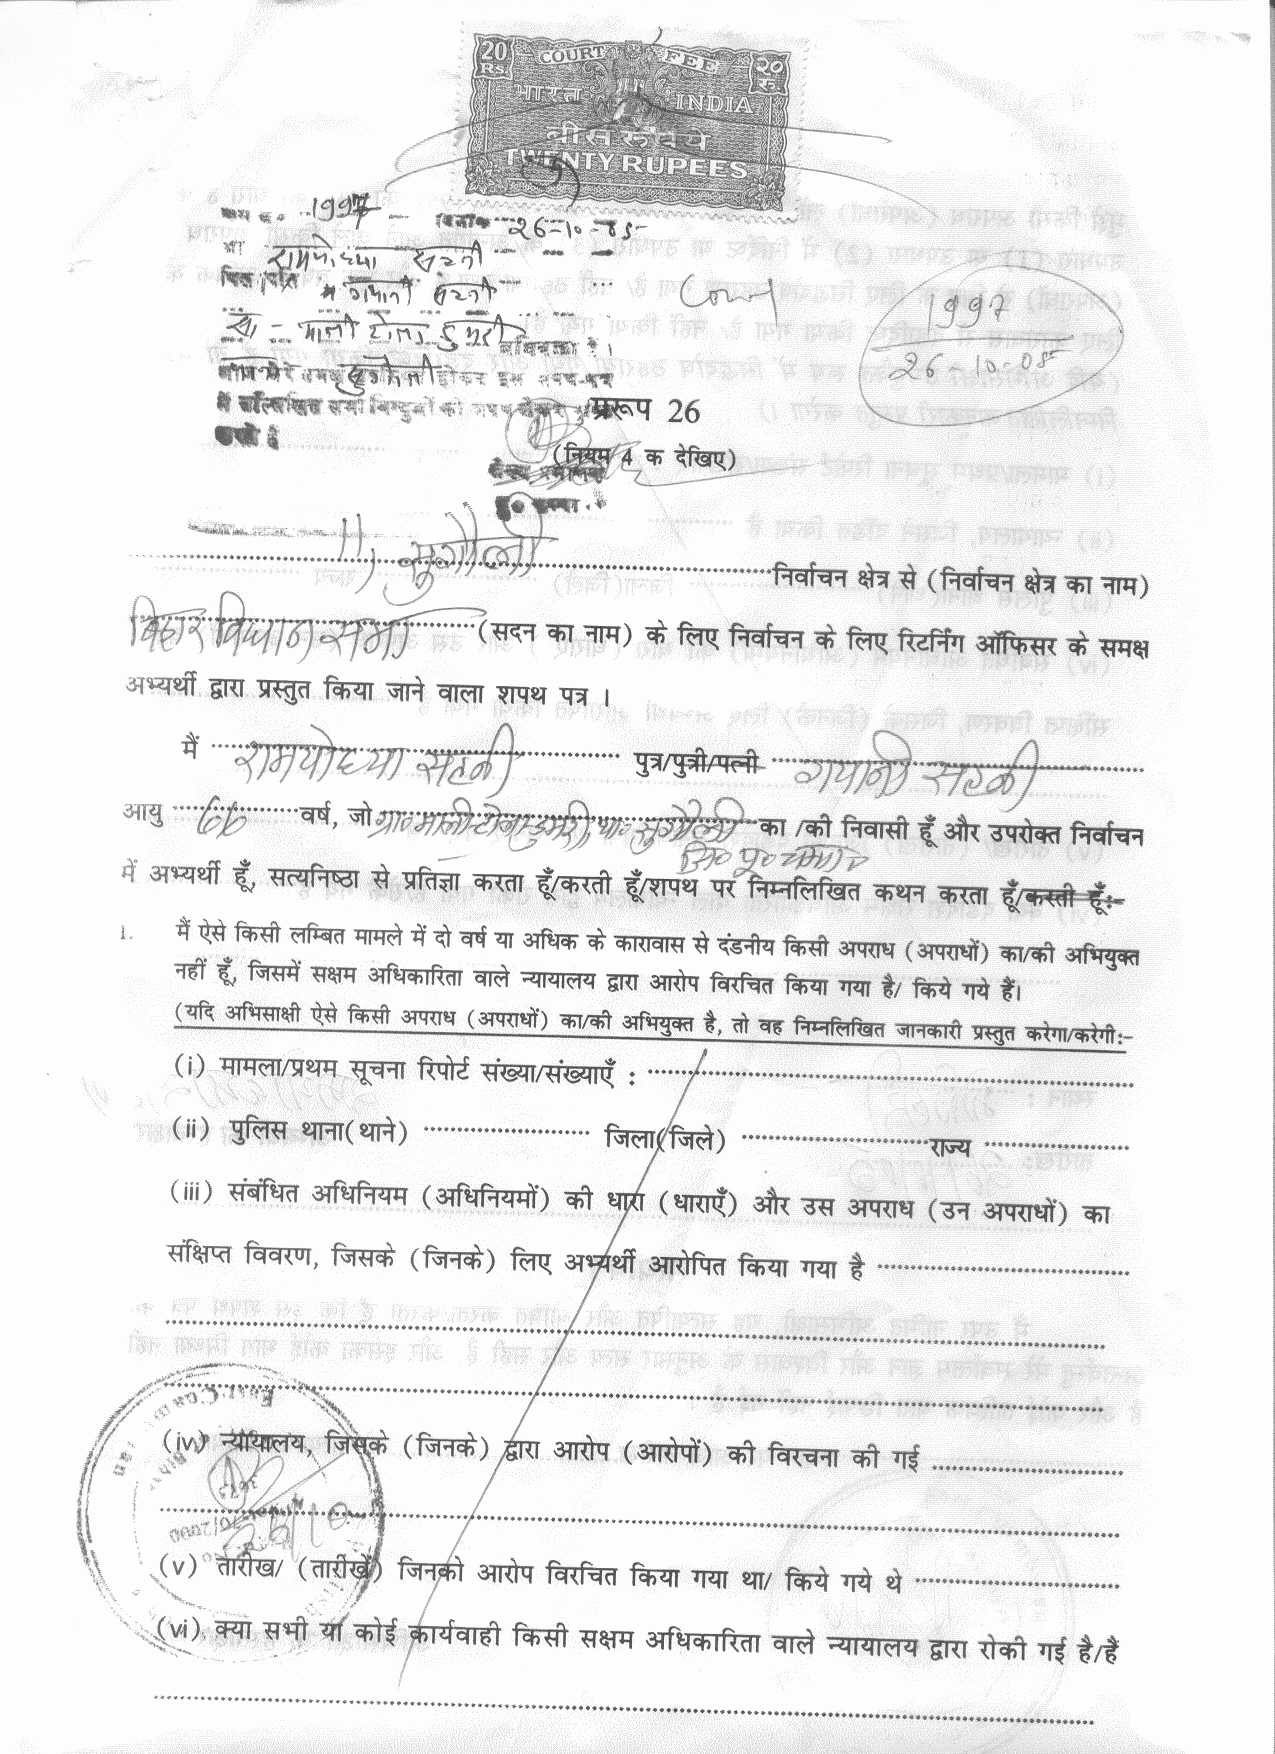 20 Rs. COURT FEE २० रु.
भारत INDIA
बीस रुपये
TWENTY RUPEES
1997 दिनांक 26-10-05
रामयोध्या सहनी
गयानी सहनी
सा - माली टोला डुमरी
1997
26 10-05
प्ररूप 26
(नियम 4 क देखिए)
11, सुगौली निर्वाचन क्षेत्र से (निर्वाचन क्षेत्र का नाम)
बिहार विधान सभा (सदन का नाम) के लिए निर्वाचन के लिए रिटर्निंग ऑफिसर के समक्ष
अभ्यर्थी द्वारा प्रस्तुत किया जाने वाला शपथ पत्र ।
मैं रामयोध्या सहनी पुत्र/पुत्री/पत्नी गयानी सहनी
आयु 66 वर्ष, जो ग्रा० माली टोला डुमरी, था० सुगौली का /की निवासी हूँ और उपरोक्त निर्वाचन
जि० पू० चम्पारण
में अभ्यर्थी हूँ, सत्यनिष्ठा से प्रतिज्ञा करता हूँ/करती हूँ/शपथ पर निम्नलिखित कथन करता हूँ/करती हूँ:-
1. मैं ऐसे किसी लम्बित मामले में दो वर्ष या अधिक के कारावास से दंडनीय किसी अपराध (अपराधों) का/की अभियुक्त
नहीं हूँ, जिसमें सक्षम अधिकारिता वाले न्यायालय द्वारा आरोप विरचित किया गया है/ किये गये हैं।
(यदि अभिसाक्षी ऐसे किसी अपराध (अपराधों) का/की अभियुक्त है, तो वह निम्नलिखित जानकारी प्रस्तुत करेगा/करेगी:-
(i) मामला/प्रथम सूचना रिपोर्ट संख्या/संख्याएँ :
(ii) पुलिस थाना(थाने) जिला(जिले) राज्य
(iii) संबंधित अधिनियम (अधिनियमों) की धारा (धाराएँ) और उस अपराध (उन अपराधों) का
संक्षिप्त विवरण, जिसके (जिनके) लिए अभ्यर्थी आरोपित किया गया है
(iv) न्यायालय, जिसके (जिनके) द्वारा आरोप (आरोपों) की विरचना की गई
(v) तारीख/ (तारीखें) जिनको आरोप विरचित किया गया था/ किये गये थे
(vi) क्या सभी या कोई कार्यवाही किसी सक्षम अधिकारिता वाले न्यायालय द्वारा रोकी गई है/हैं